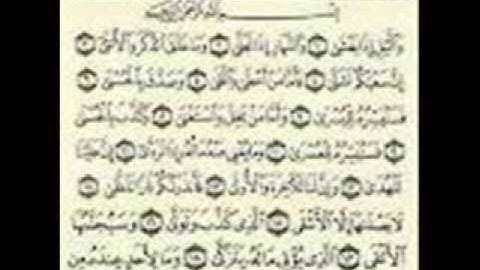 بِسْمِ اللَّهِ الرَّحْمَٰنِ الرَّحِيمِ
وَالَّيْلِ إِذَا يَغْشَىٰ ١ وَالنَّهَارِ إِذَا تَجَلَّىٰ ٢ وَمَا خَلَقَ الذَّكَرَ وَالْأُنثَىٰ ٣
إِنَّ سَعْيَكُمْ لَشَتَّىٰ ٤ فَأَمَّا مَنْ أَعْطَىٰ وَاتَّقَىٰ ٥ وَصَدَّقَ بِالْحُسْنَىٰ ٦
فَسَنُيَسِّرُهُ لِلْيُسْرَىٰ ٧ وَأَمَّا مَن بَخِلَ وَاسْتَغْنَىٰ ٨ وَكَذَّبَ بِالْحُسْنَىٰ
٩ فَسَنُيَسِّرُهُ لِلْعُسْرَىٰ ١٠ وَمَا يُغْنِي عَنْهُ مَالُهُ إِذَا تَرَدَّىٰ ١١ إِنَّ عَلَيْنَا
لَلْهُدَىٰ ١٢ وَإِنَّ لَنَا لَلْآخِرَةَ وَالْأُولَىٰ ١٣ فَأَنذَرْتُكُمْ نَارًا تَلَظَّىٰ ١٤
لَا يَصْلَاهَا إِلَّا الْأَشْقَى ١٥ الَّذِي كَذَّبَ وَتَوَلَّىٰ ١٦ وَسَيُجَنَّبُهَا
الْأَتْقَى ١٧ الَّذِي يُؤْتِي مَالَهُ يَتَزَكَّىٰ ١٨ وَمَا لِأَحَدٍ عِندَهُ مِن